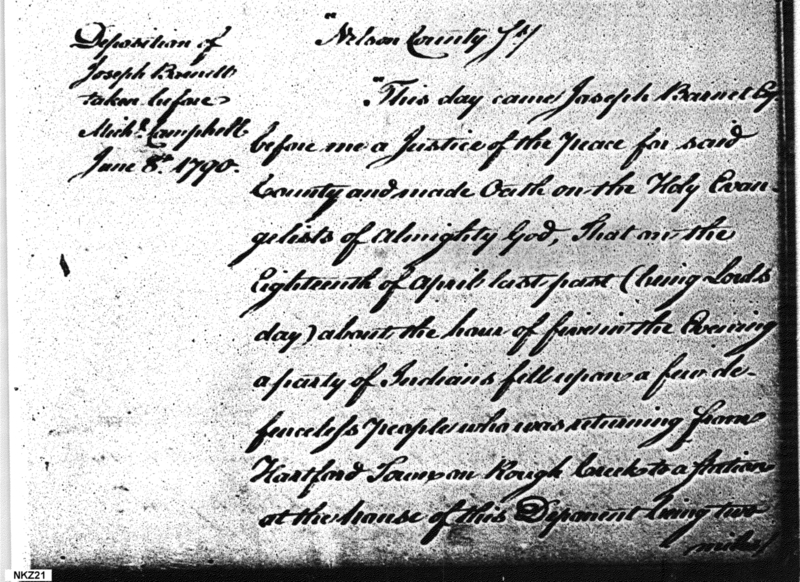 Deposition of
Joseph Barnett
taken before
Mich.l Campbell
June 8th. 1790.
"Nelson County Ss/
"This day came Joseph Barnet Esq.
before me a Justice of the Peace for said
County and made Oath on the Holy Evan-
gelists of Almighty God, That on the
Eighteenth of April last past (being Lords
day) about the hour of five in the Evening
a party of Indians fell upon a few de-
fenceless People who was returning from
Hartford Town on Rough Creek to a Station
at the house of this Deponent being two
miles/
NKZ21